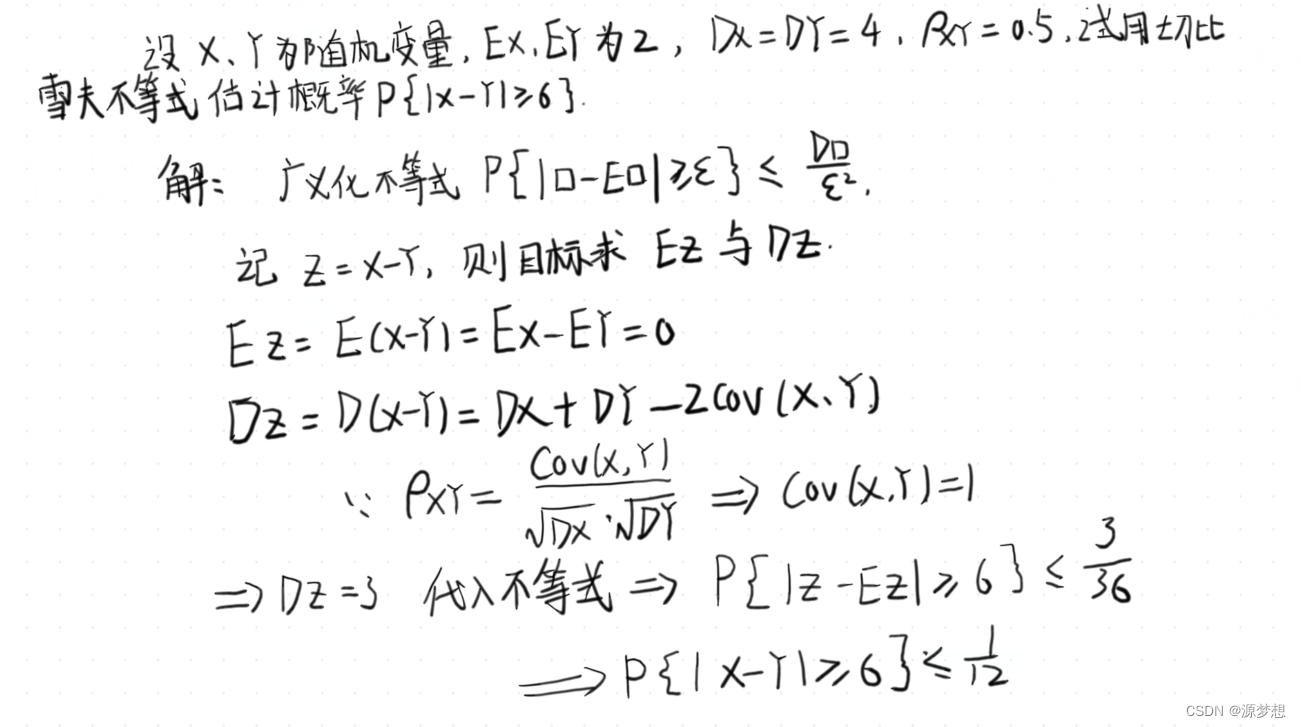 设 X、Y 为随机变量, EX、EY 为 2, DX = DY = 4, ρXY = 0.5, 试用切比
雪夫不等式估计概率 P{|X-Y|≥6}.
解: 广义化不等式 P{|□-E□|≥ε} ≤ D□/ε²,
记 Z = X-Y, 则目标求 EZ 与 DZ.
EZ = E(X-Y) = EX-EY = 0
DZ = D(X-Y) = DX + DY - 2Cov(X、Y)
∵ ρXY = Cov(X,Y)/(√DX·√DY) ⇒ Cov(X,Y)=1
⇒ DZ=3 代入不等式 ⇒ P{|Z-EZ|≥6} ≤ 3/36
⇒ P{|X-Y|≥6} ≤ 1/12
CSDN @源梦想